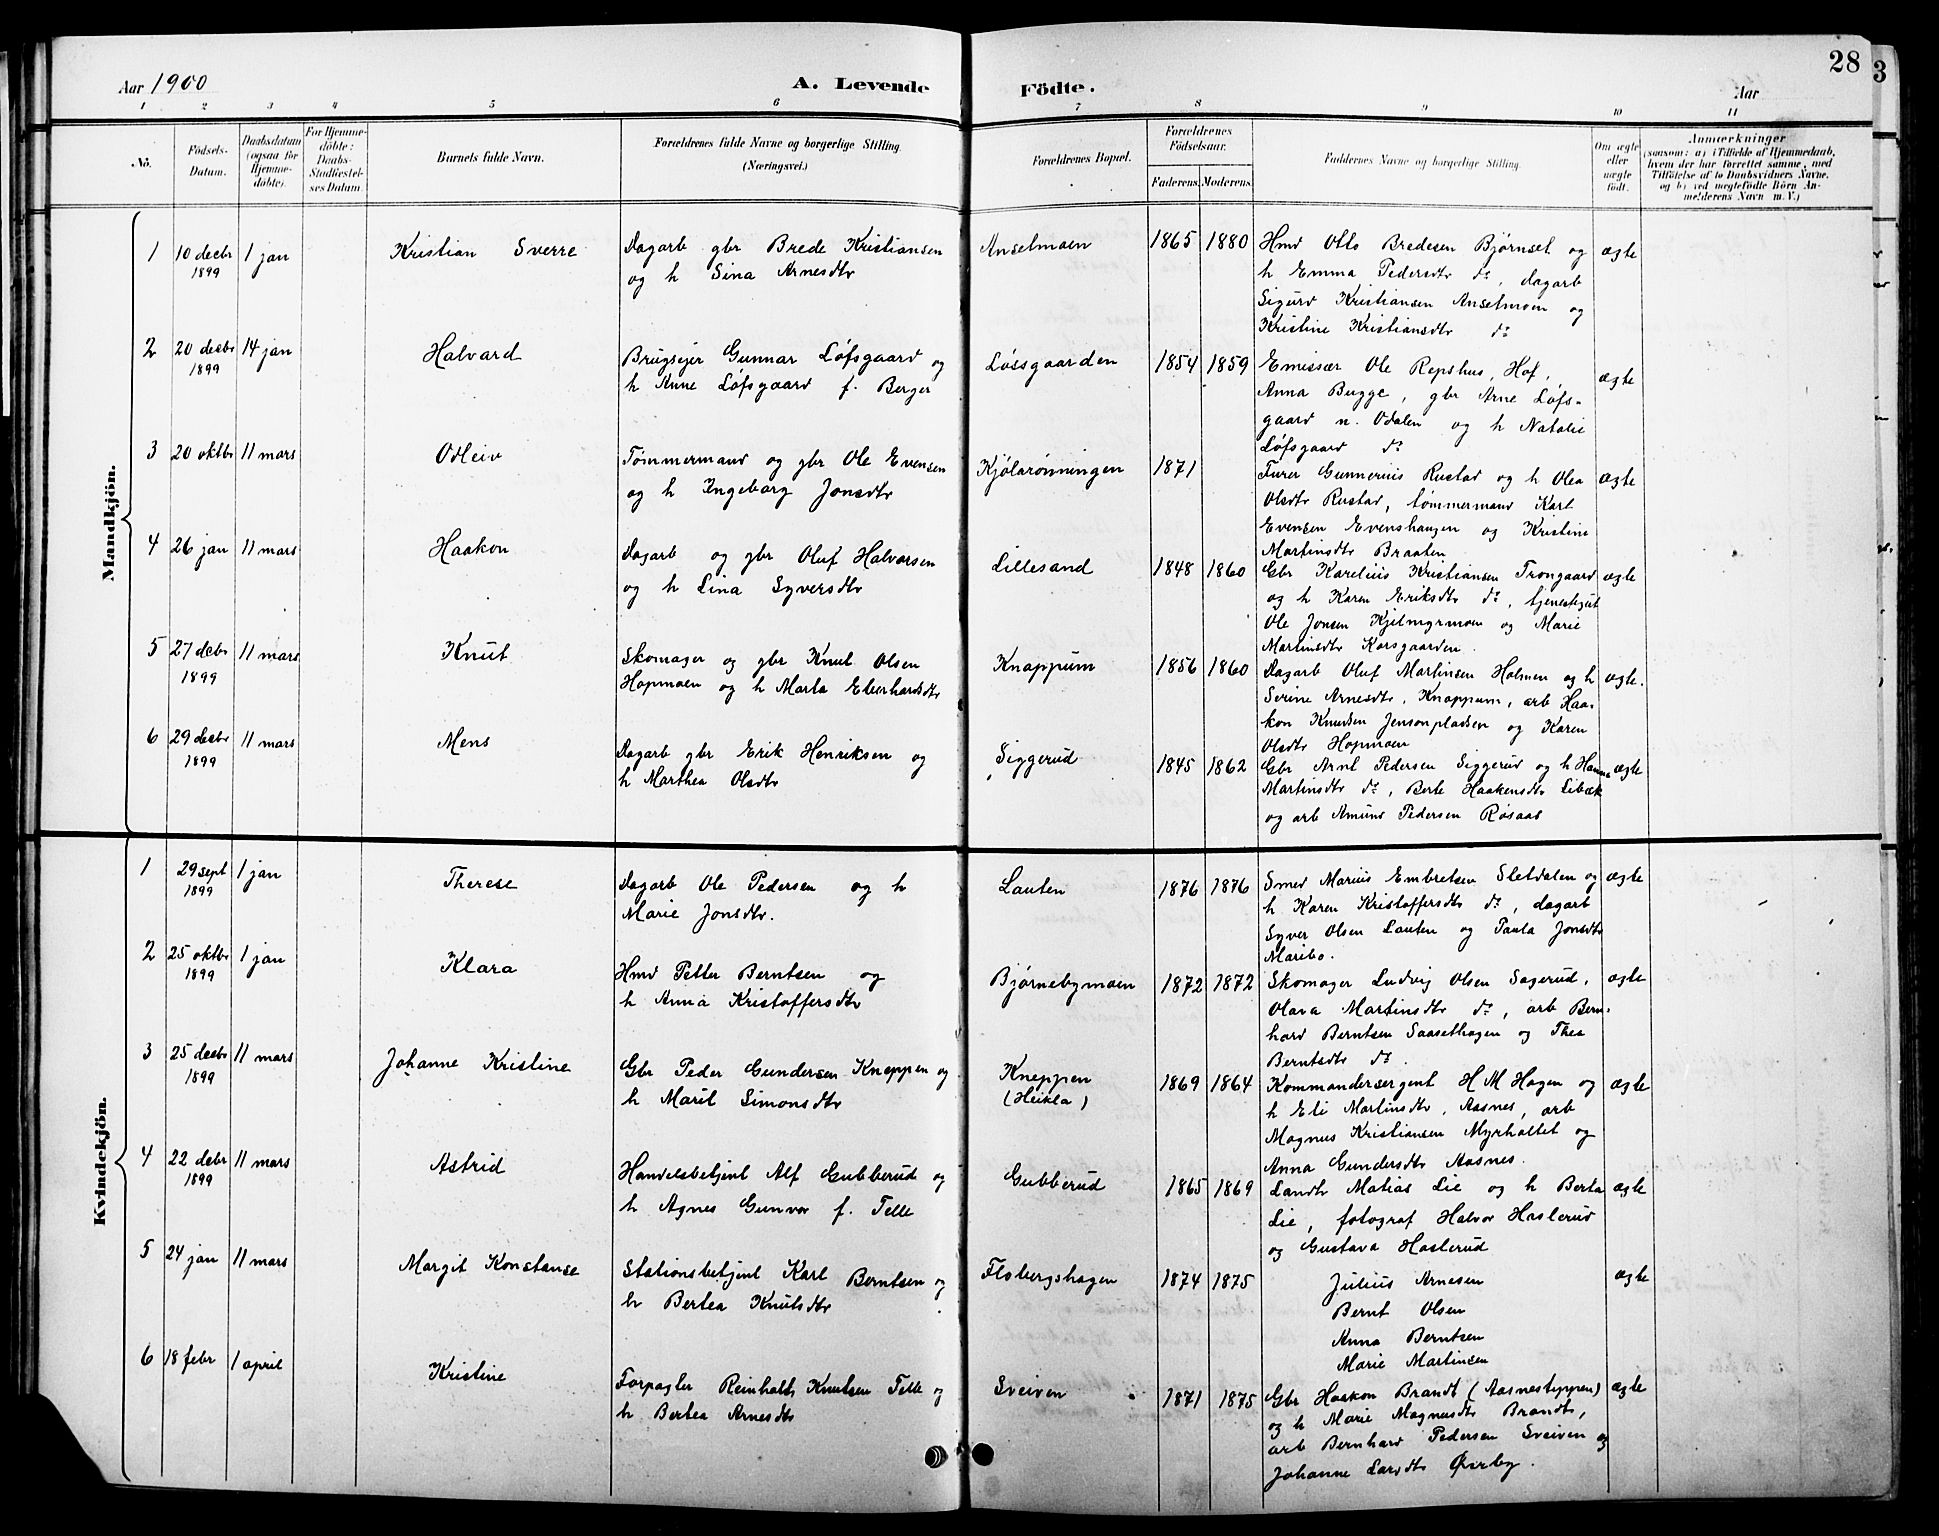 28
3
Aar 1900
A. Levende Födte.
Aar
1 2 3 4 5 6 7 8 9 10 11
No.
Födsels-Datum.
Daabsdatum (ogsaa for Hjemmedöbte).
For Hjemmedöbte: Daabs-Stadfæstelses Datum.
Barnets fulde Navn.
Forældrenes fulde Navne og borgerlige Stilling. (Næringsvei.)
Forældrenes Bopæl.
Forældrenes Födselsaar.
Faderens. Moderens.
Faddernes Navne og borgerlige Stilling.
Om ægte eller uægte födt.
Anmærkninger
(saasom: a) i Tilfælde af Hjemmedaab,
hvem der har forrettet samme, med
Tilföielse af to Daabsvidners Navne.
og b) ved uægtefödte Börn An-
melderens Navn m. V.)
Mandkjön.
1 10 decbr 1899 1 jan Kristian Sverre
Dagarb gbr Brede Kristiansen
og h Sina Arnesdtr
Anselmoen 1865 1880
Hmd Otto Bredesen Bjørnset og
h Emma Pedersdtr do, dagarb
Sigurd Kristiansen Anselmoen og
Kristine Kristiansdtr do
ægte
2 20 decbr 1899 14 jan Halvard
Brugsejer Gunnar Løfsgaard og
h Anne Løfsgaard f. Berger
Løssgaarden 1854 1859
Emissær Ole Repshus, Hof,
Anna Bugge, gbr Arne Løfs-
gaard n. Odalen og h Natalie
Løfsgaard do
ægte
3 20 oktbr 11 mars Odleiv
Tømmermand og gbr Ole Evensen
og h Ingeborg Jonsdtr
Kjølarønningen 1871
Furer Gunnerius Rustad og h Olea
Olsdtr Rustad, tømmermand Karl
Evensen Evenshaugen og Kristine
Martinsdtr Braaten
ægte
4 26 jan 11 mars Haakon
Dagarb og gbr Oluf Halvorsen
og h Lina Syversdtr
Lillesand 1848 1860
Gbr Karelius Kristiansen Trongaard
og h Karen Eriksdtr do, tjenestegut
Ole Jonsen Kjelmyrmoen og Marie
Martinsdtr Korsgaarden.
ægte
5 27 decbr 1899 11 mars Knut
Skomager og gbr Knut Olsen
Hopmoen og h Marta Eberhardsdtr
Knappum 1856 1860
Dagarb Oluf Martinsen Holmen og h
Serine Arnesdtr, Knappum, arb Haa-
kon Knudsen Jensonpladsen og Karen
Olsdtr Hopmoen
ægte.
6 29 decbr 1899 11 mars Mens
Dagarb gbr Erik Henriksen og
h Marthea Olsdtr
Siggerud 1845 1862
Gbr Arnt Pedersen Siggerud og h Hanna
Martinsdtr do, Berte Haakensdtr Libæk
og arb Amund Pedersen Røsaas
ægte
Kvindekjön.
1 29 sept 1899 1 jan Therese
Dagarb Ole Pedersen og h
Marie Jonsdtr.
Lauten 1876 1876
Smed Marius Embretsen Sletdalen og
h Karen Kristoffersdtr do, dagarb
Syver Olsen Lauten og Paula Jonsdtr
Maribo.
ægte
2 25 oktbr 1899 1 jan Klara
Hmd Petter Berntsen og
h Anna Kristoffersdtr
Bjørnebymoen 1872 1872
Skomager Ludvig Olsen Sagerud,
Olava Martinsdtr do, arb Bern-
hard Berntsen Saasethagen og Thea
Berntsdtr do.
ægte
3 25 decbr 1899 11 mars Johanne Kristine
Gbr Peder Gundersen Kneppen og
h Marit Simonsdtr
Kneppen (Heikla) 1869 1864
Kommandersergent H M Hagen og
h Eli Martinsdtr, Aasnes, arb
Magnus Kristiansen Myrholtet og
Anna Gundersdtr Aasnes.
ægte
4 22 decbr 1899 11 mars Astrid
Handelsbetjent Alf Gubberud og
h Agnes Gunvor f. Telle
Gubberud 1865 1869
Landtr Matias Lie og h Berta
Lie, fotograf Halvor Haslerud
og Gustava Haslerud
ægte
5 24 jan 11 mars Margit Konstanse
Stationsbetjent Karl Berntsen og
h Bertea Knutsdtr
Flobergshagen 1874 1875
Julius Arnesen
Bernt Olsen
Anna Berntsen
Marie Martinsen
ægte
6 18 febr 1 april Kristine
Forpagter Reinholdt Knutsen Telle og
h Bertea Arnesdtr
Sveiven 1871 1875
Gbr Haakon Brandt (Aasnestoppen)
og h Marie Magnusdtr Brandt,
arb Bernhard Pedersen Sveiven og
Johanne Larsdtr Østby.
ægte